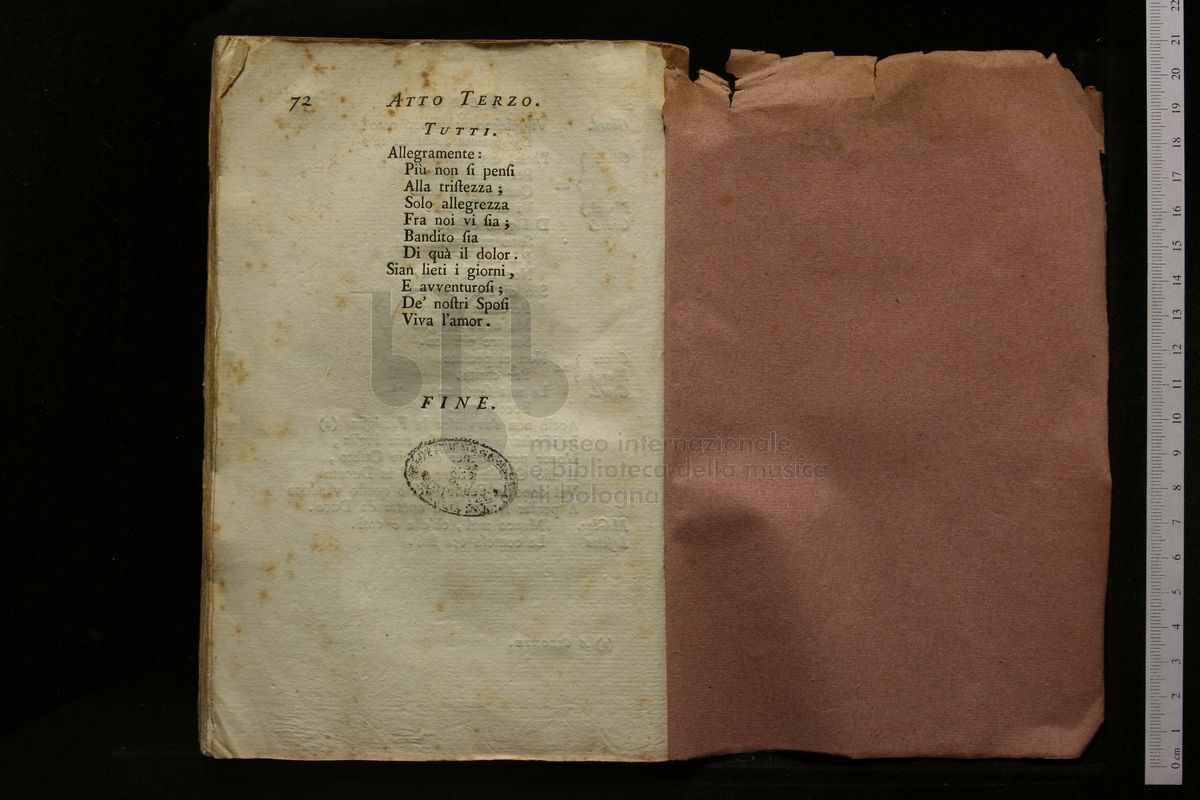 72 ATTO TERZO.
TUTTI.
Allegramente:
Più non ſi penſi
Alla triſtezza;
Solo allegrezza
Fra noi vi ſia;
Bandito ſia
Di quà il dolor.
Sian lieti i giorni,
E avventuroſi;
De' noſtri Spoſi
Viva l'amor.
FINE.
museo internazionale
e biblioteca della musica
di bologna
22
21
20
19
18
17
16
15
14
13
12
11
10
9
8
7
6
5
4
3
2
1
0 cm